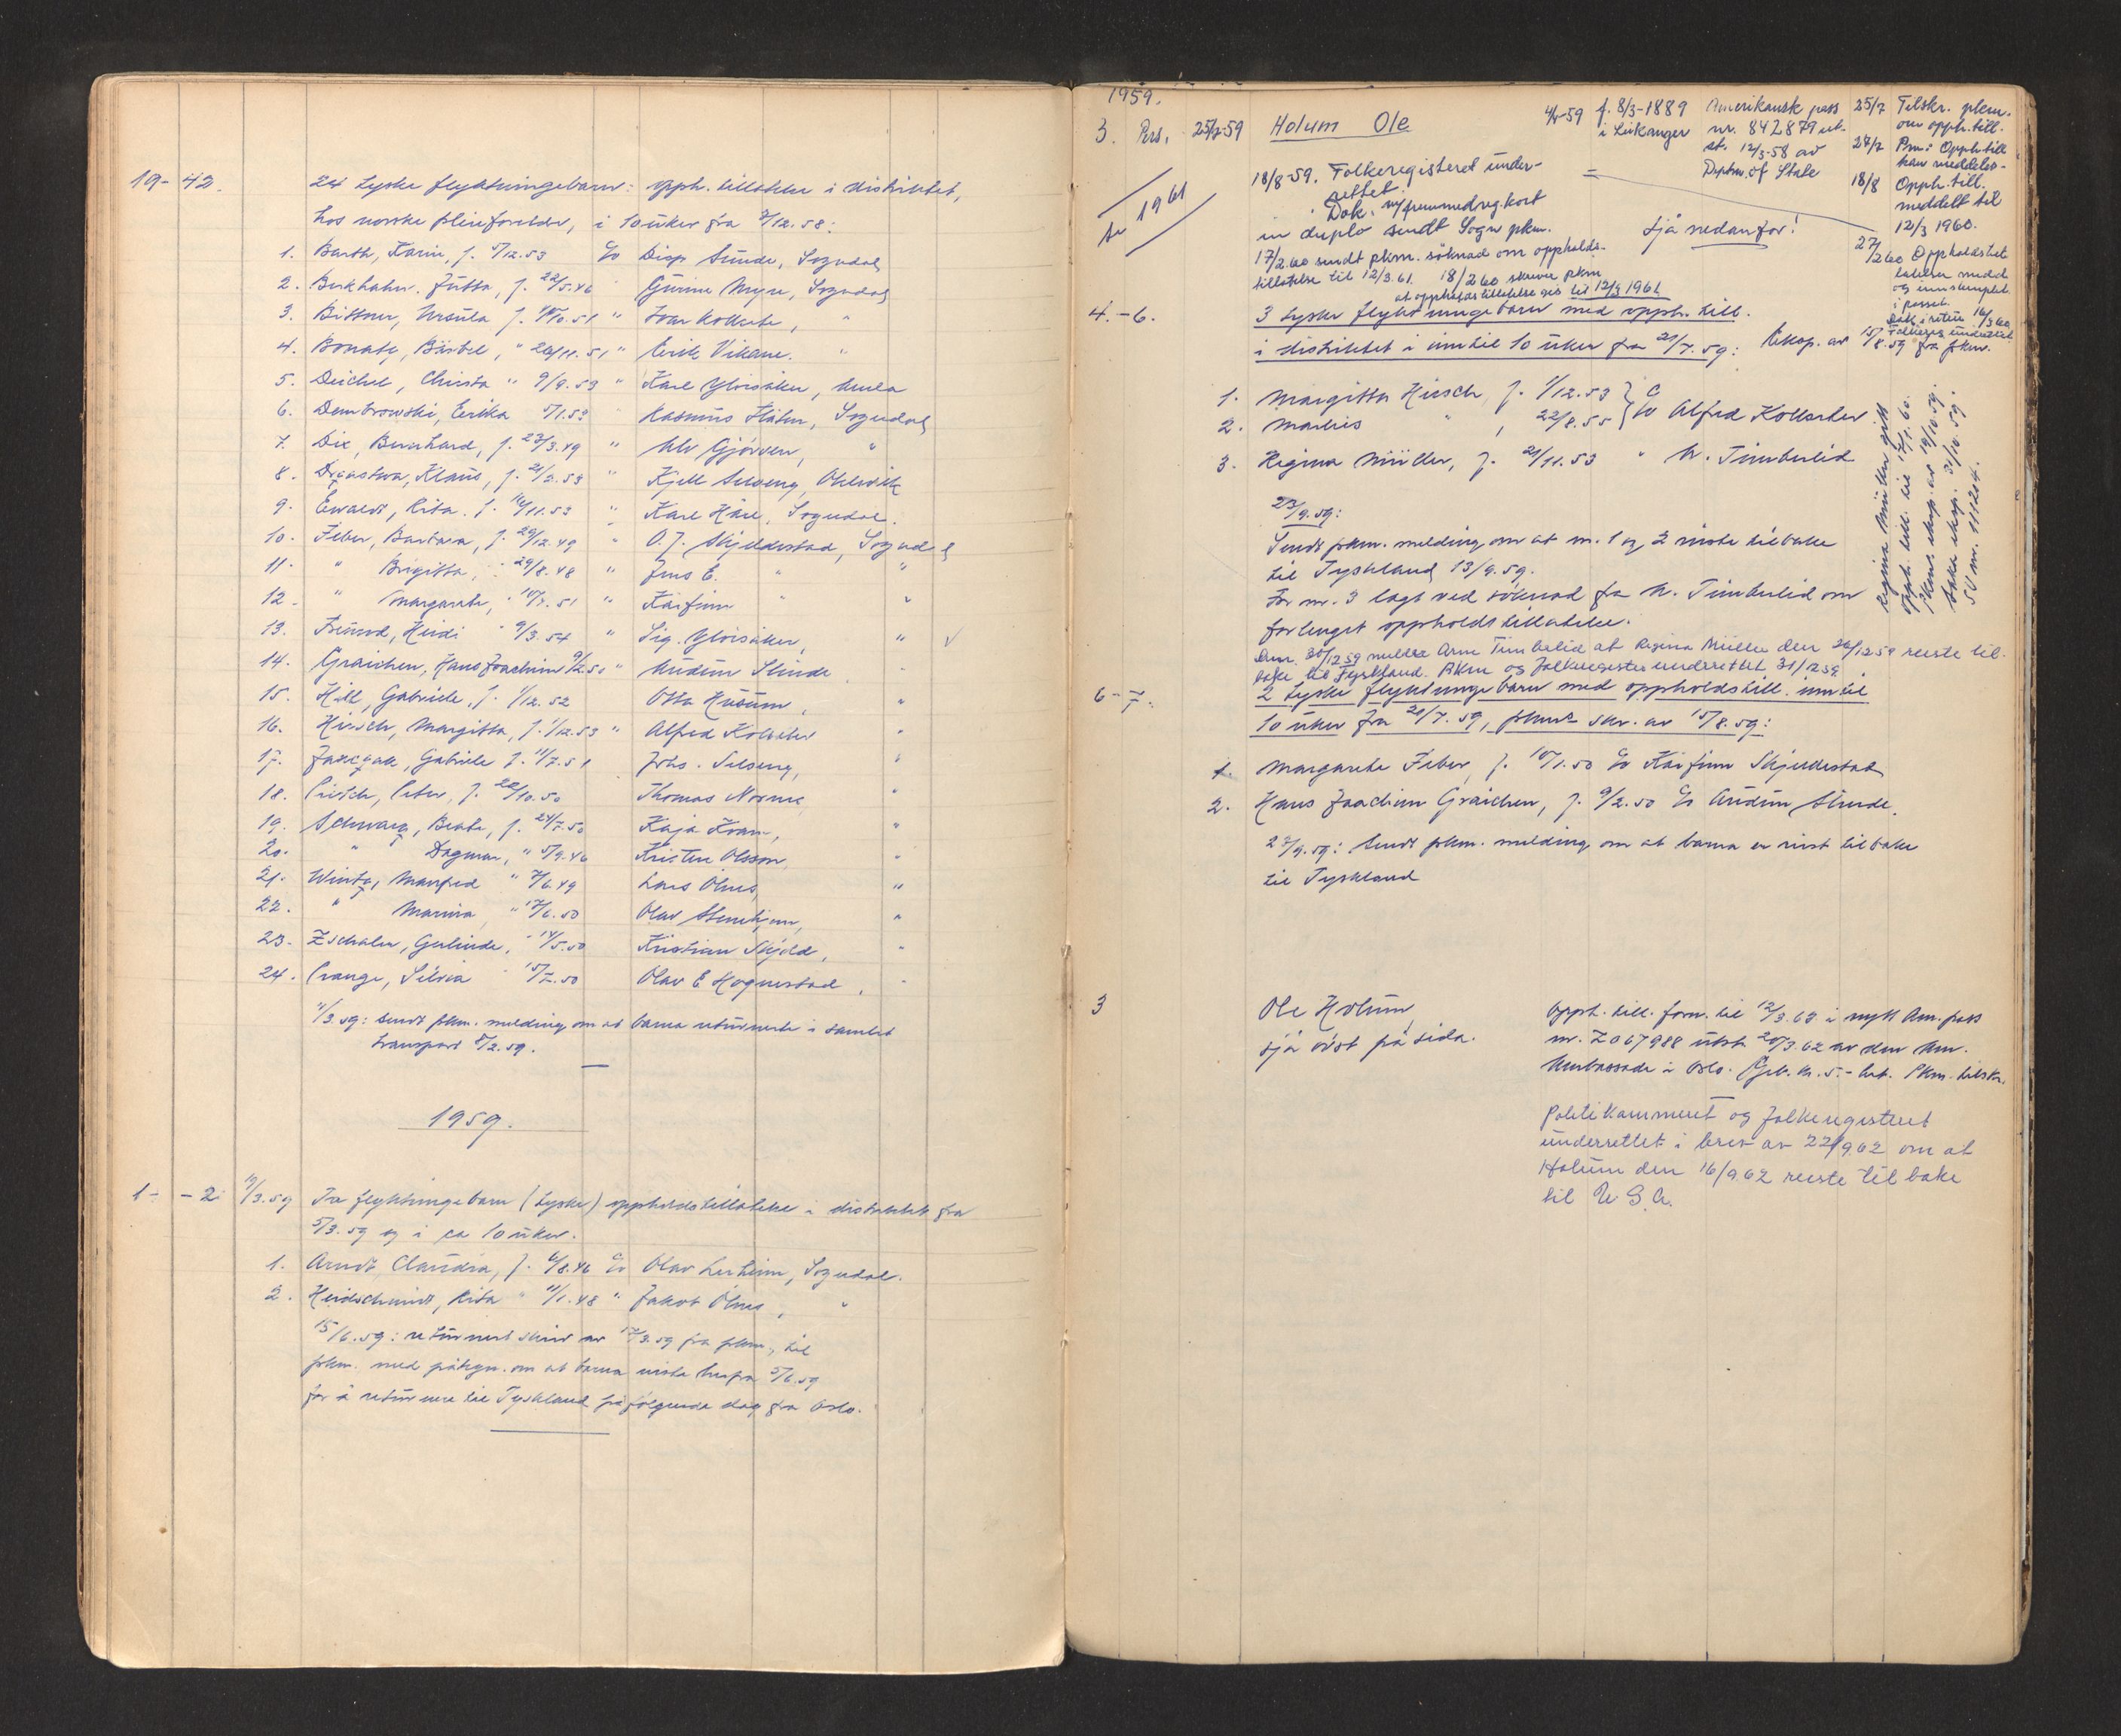 19-42. 24 tyske flyktningebarn: opph. tillatelse i distriktet,
hos norske pleieforeldre, i 10 uker fra /12.58:
1. Barth, Karin, f. 5/12.53 c/o Disp Sunde, Sogndal
2. Berkhahn. Jutta, f. 22/5.46 " Gurine Myre, Sogndal
3. Bittner, Ursula f. /10.51 " Ivar Kollsete, "
4. Bonatz, Bärbel, " 26/11.51 " Eirik Vikane. "
5. Deichel, Christa " 9/9.53 " Karl Ylvisåker,
6. Dembrowski, Erika 5/1.53 " Rasmus , Sogndal
7. Dix, Bernhard, f. 23/3.49 " Alv Gjørven, "
8. Klaus, f. 21/2.53 " Kjell Selseng,
9. Ewaldt, Rita. f. 16/11.53 " Karl , Sogndal.
10. Feber, Barbara, f. 29/12.49 " O. J. Skjeldestad, Sogndal
11. " Brigitta, " 29/8.48 " Jens E. " "
12. " Margarete, " .51 " Kårfinn " "
13. Freund, Heidi " 9/3.54 " Sig. Ylvisåker, " √
14. Graichen, Hans Joachim 9/2.50 " Audun Stunde "
15. Hill, Gabriele, f. 1/12.52 Otto Husum, "
16. Hirsch, Margitta, f. 1/12.53 " Alfred Kollseter "
17. Gabriele f. 11/7.51 Johs. Selseng, "
18. f. 28/10.50 Thomas "
19. Schwarz, Beate, f. 24/7.50 Kaja Kvam, "
20. " Dagmar, " 5/9.46 Kristen Olsson, "
21. Manfred " 7/6.49 Lars Ølnes, "
22. " Marina " 17/6.50 Olav Stenehjem, "
23. Zschaler, Gerlinde, " 14/5.50 Kristian Skjeld, "
24. Prange, Silvia " 15/7.50 Olav E Hognestad, "
11/3.59: Sendt pkm. melding om at barna returnerte i samlet
transport 5/2.59.
1959.
1- -2. /3.59 To flyktningebarn (tyske) oppholdstillatelse i distriktet fra
5/3.59 og i ca 10 uker.
1. Arndt, Claudia, f. 6/8.46 c/o Olav Lerheim, Sogndal.
2. Heidschmidt, Rita " 11/1.48 " Jakob Ølnes, "
15/6.59: returnert skriv av 17/3.59 fra pkm., til
pkm. med påtegn. om at barna reiste herfra 5/6.59
for å returnere til Tyskland påfølgende dag fra Oslo.
1959.
3. Pers. 25/7-59 Holum Ole 4/-59 f. 8/3-1889
i Leikanger
Amerikansk pass
nr. 842879 ut-
st. 12/3-58 av
Deptm. of State
25/7 Tilskr. pkm.
om opph. till.
27/7 Pm: Opph. till
kan meddeles-
18/8 Opph. till.
meddelt til
12/3 1960.
1961
18/8-59. Folkeregisteret under-
rettet.
Dok. m/fremmedreg.kort
in duplo sendt Sogn pkm.
Sjå nedanfor!
17/2.60 sendt pkm. söknad om oppholds-
tillatelse til 12/3.61. 18/2 60 skriver pkm
at oppholdstillatelse gis til 12/3 1961.
27/2 60 Oppholdstil-
latelse medd
og innstemplet
i passet.
4.-6. 3 tyske flyktningebarn med opph. till.
i distriktet i inntil 10 uker fra 21/7.59: Ekop. av 15/8.59 fra pkm.
1. Margitta Hirsch, f. 1/12.53 } c/o Alfred Kollseter
2. Marlies " , 22/8.55
3. Regina Müller, f. 21/11.53 " A. Timberlid
Regina Müller gitt
opph. till. til 17/1.60.
23/9.59:
Sendt pkm. melding om at nr. 1 og 2 reiste tilbake
til Tyskland 13/9.59.
For nr. 3 lagt ved söknad fra A. Timberlid om
forlenget oppholdstillatelse.
Anm. 30/12 59 melder Arne Timberlid at Regina Müller den 26/12 59 reiste til-
bake til Tyskland. Pkm og folkeregister underrettet 31/12 59.
6-7. 2 tyske flyktningebarn med oppholdstill. inntil
10 uker fra 20/7.59, pkms skr. av 15/8.59:
1. Margarete Feber, f. 10/1.50 c/o Kårfinn Skjeldestad
2. Hans Joachim Graichen, f. 9/2.50 c/o Audun Stunde.
23/9.59: Sendt pkm. melding om at barna er reist tilbake
til Tyskland
3 Ole Holum,
sjå övst på sida.
Opph. till. forn. til 12/3.63 i nytt Am. pass
nr. Z067988 utst. 20/3.62 av den Am.
Ambassade i Oslo. Geb. kr. 5.- bet. Pkm. tilskr.
Politikammeret og folkeregisteret
underrettet i brev av 22/9.62 om at
Holum den 16/9.62 reiste tilbake
til U.S.A.